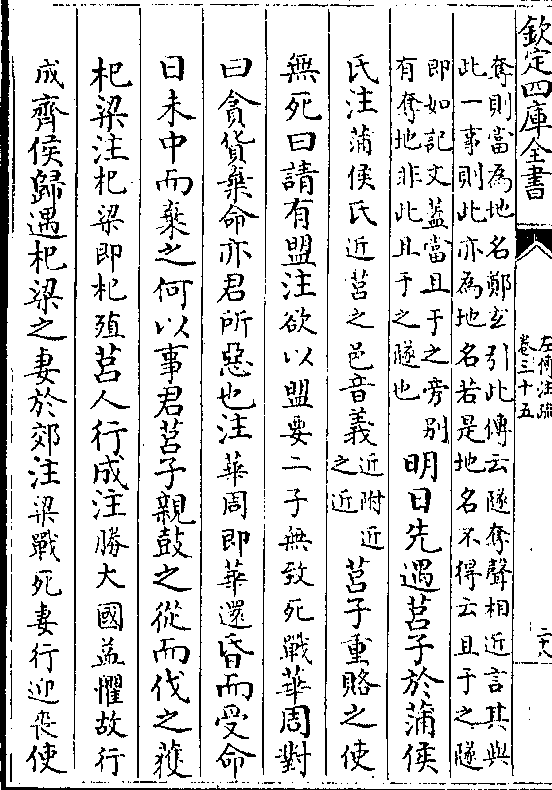 欽定四庫全書
左傳注疏
卷三十五
二六
奪則當為地名鄭玄引此傳云隧奪聲相近言其與
此一事則此亦為地名若是地名不得云且于之隧
即如記文蓋當且于之旁別
有奪地非此且于之隧也
明日先遇莒子於蒲侯
氏注蒲侯氏近莒之邑音義近附近
之近
莒子重賂之使
無死曰請有盟注欲以盟要二子無致死戰華周對
曰貪貨棄命亦君所惡也注華周即華還昏而受命
日未中而棄之何以事君莒子親鼓之從而伐之獲
杞梁注杞梁即杞殖莒人行成注勝大國益懼故行
成齊侯歸遇杞梁之妻於郊注梁戰死妻行迎喪使